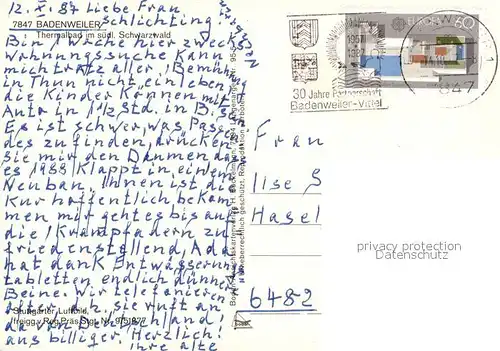 12.X.87 Liebe Frau
Schlichting!
7847 BADENWEILER
Thermalbad im südl. Schwarzwald
Bin 1 Woche hier zwecks
Wohnungssuche kann
mich trotz aller Bemüh
in Thun nicht einleben,
die Kinder können mit
Auto in 1 1/2 Std. in B. s
Es ist schwer, was Passen
des zu finden, drücken
sie mir den Daumen da
es 1988 klappt in einem
Neubau. Ihnen ist die
Kur hoffentlich bekom
men mir geht es bis auf
die Krampfadern zu
friedenstellend, Ada
hat dank Entwässerun
tabletten endlich dünner
Beine. Wir telefonieren
öfter d.z. sie ruft an
da von Deutschland
aus billiger. Herzlich!
Ihre alte
Stuttgarter Luftbild,
freigg. Reg.Präs. Stgt. Nr.
EUROPA
60
1957
30 Jahre Partnerschaft
Badenweiler-Vittel
7847
1
Frau
Ilse S
Hasel
6482
privacy protection
Datenschutz